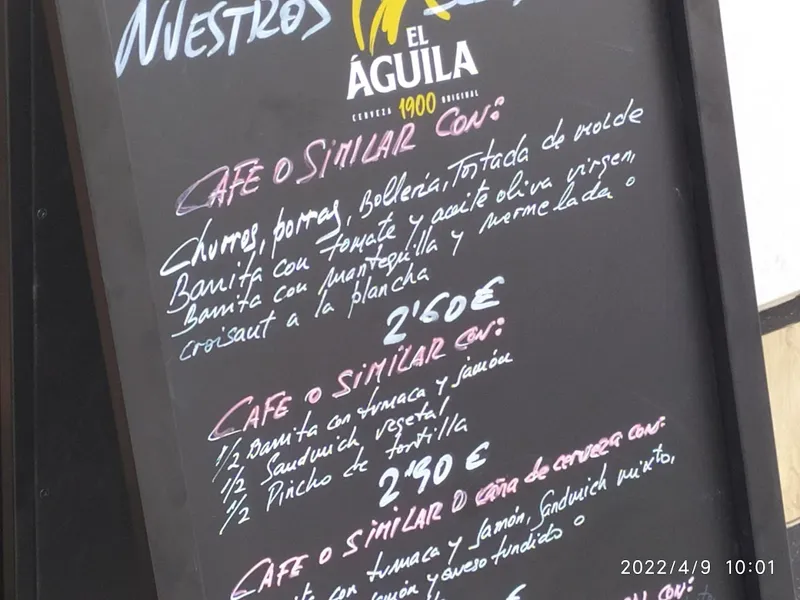 NUESTROS
EL
ÁGUILA
CERVEZA 1900 ORIGINAL
CAFE O SIMILAR CON:
Churros, porras, Bollería, Tostada de molde
Barrita con tomate y aceite oliva virgen,
Barrita con mantequilla y mermelada o
croisant a la plancha
2'60€
CAFE O SIMILAR CON:
1/2 Barrita con tumaca y jamón
1/2 Sandwich vegetal
1/2 Pincho de tortilla
2'90 €
CAFE O SIMILAR O caña de cerveza con:
con tumaca y jamón, Sandwich mixto,
jamón y queso fundido o
€
CON:
2022/4/9 10:01